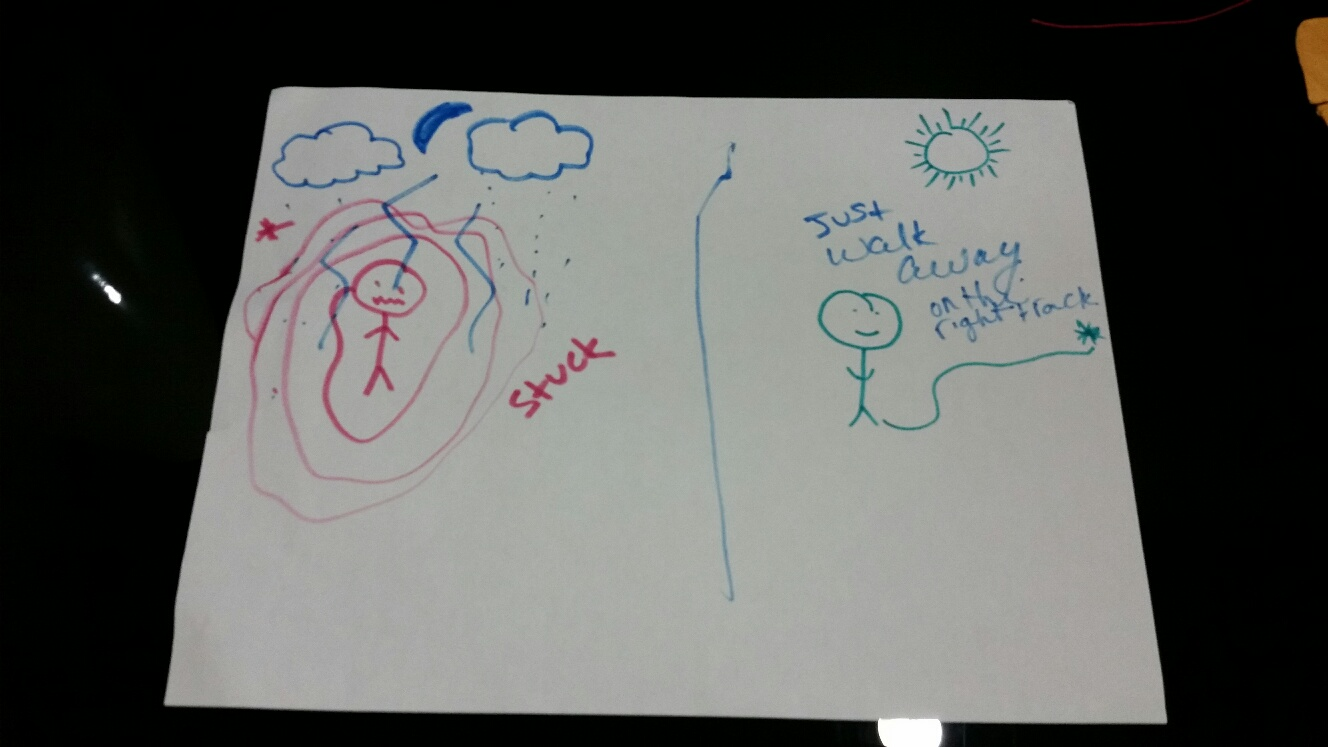 Stuck
Just
walk
away
on the
right track